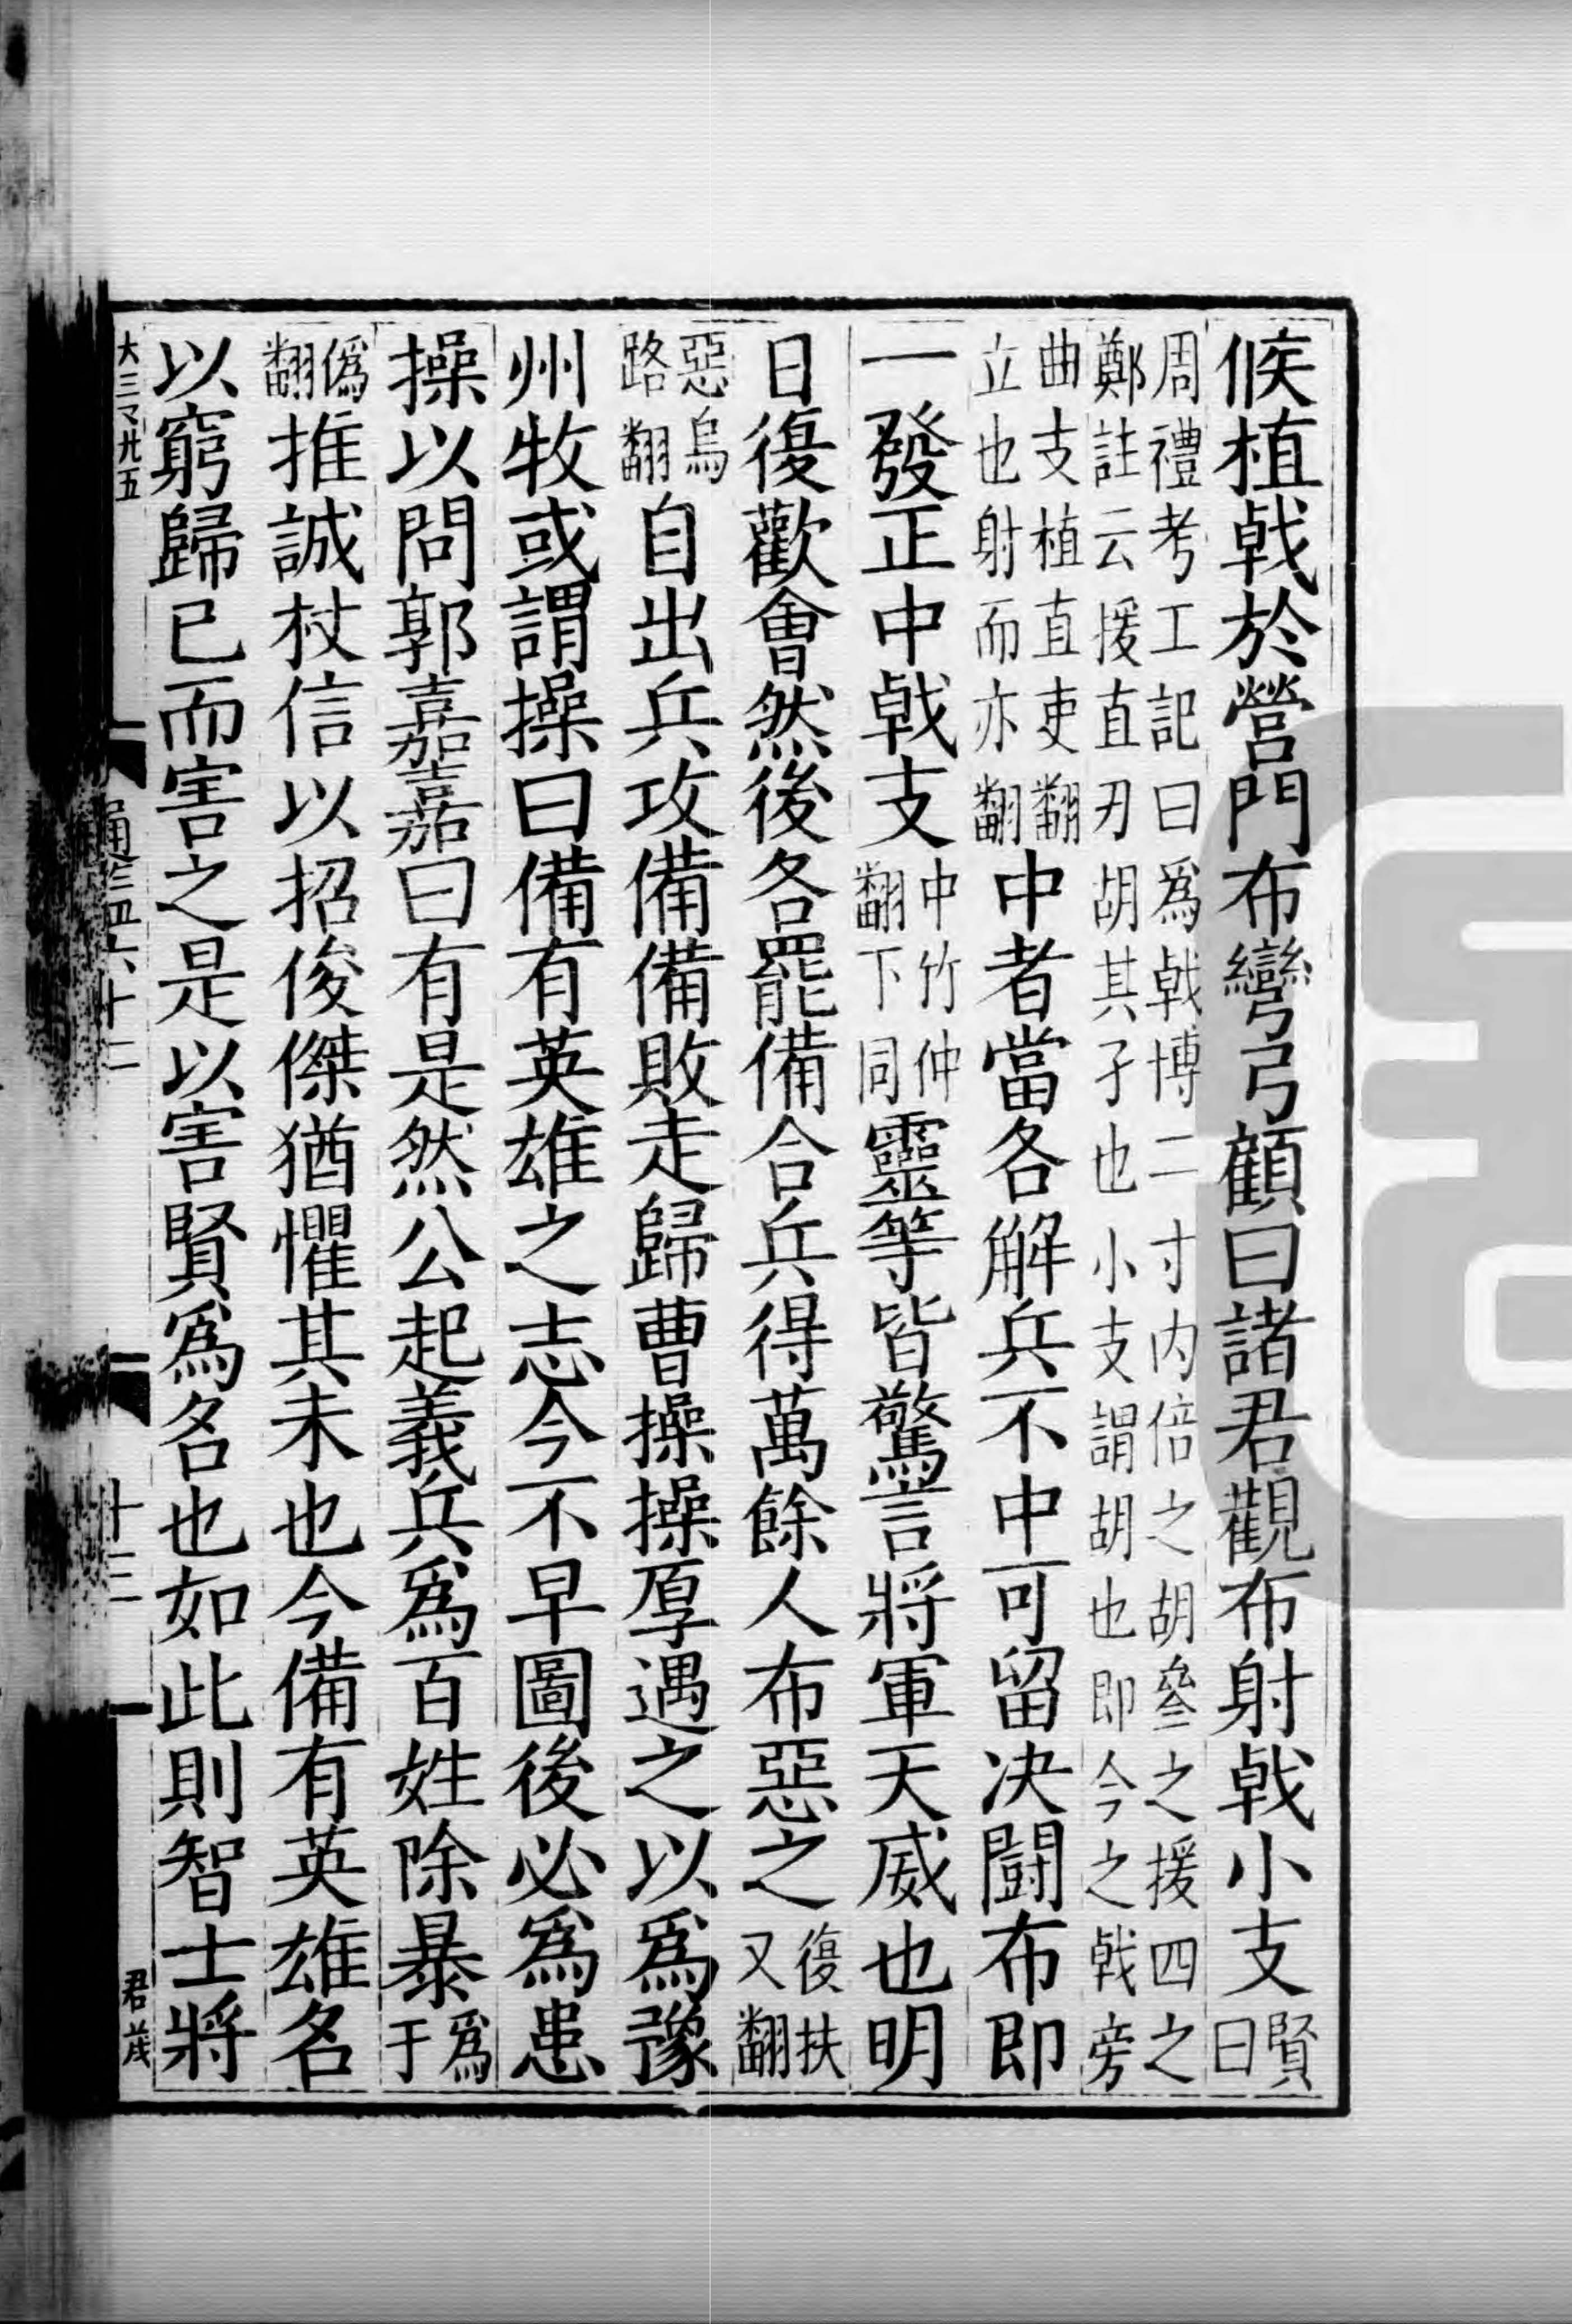 候植戟於營門布彎弓顧曰諸君觀布射戟小支賢曰
周禮考工記曰爲戟博二寸内倍之胡參之援四之
鄭註云援直刃胡其孑也小支謂胡也即今之戟旁
曲支植直吏翻
立也射而亦翻中者當各解兵不中可留决闘布即
一發正中戟支中竹仲翻下同靈等皆驚言將軍天威也明
日復歡會然後各罷備合兵得萬餘人布惡之復扶又翻
惡烏路翻自出兵攻備備敗走歸曹操操厚遇之以爲豫
州牧或謂操曰備有英雄之志今不早圖後必爲患
操以問郭嘉嘉曰有是然公起義兵爲百姓除暴爲于
僞翻推誠杖信以招俊傑猶懼其未也今備有英雄名
以窮歸已而害之是以害賢爲名也如此則智士將
大三マ廾五
十三
君茂